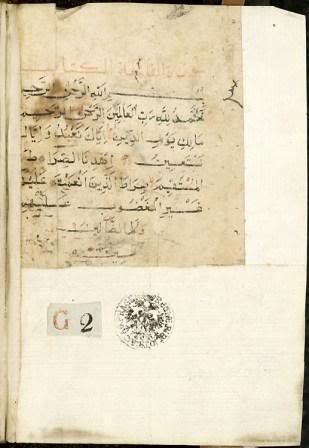 سورة الفاتحة الكتاب
بسم الله الرحمن الرحيم
الحمد لله رب العالمين الرحمن الرحيم
مالك يوم الدين اياك نعبد واياك
نستعين اهدنا الصراط
المستقيم صراط الذين انعمت عليهم
غير المغضوب عليهم
ولا الضالين
G 2